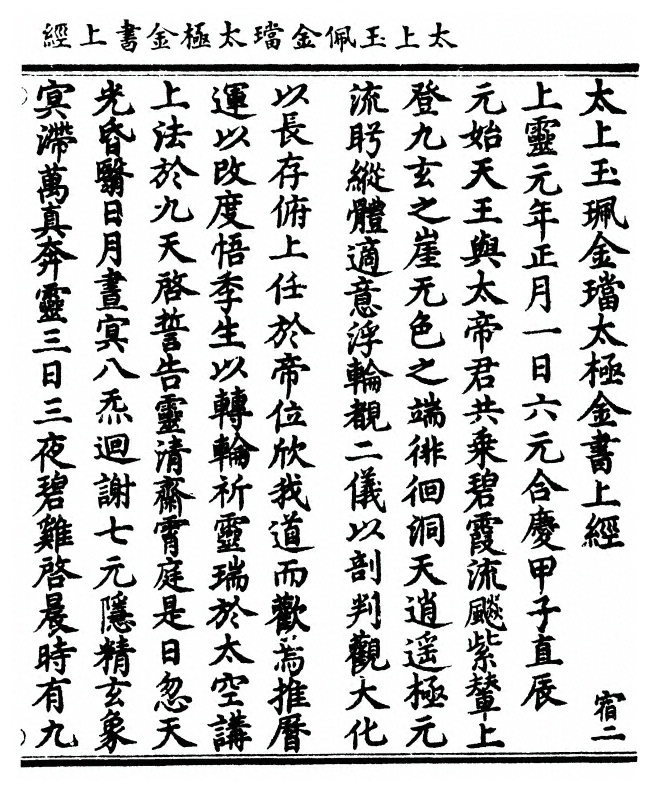 太上玉佩金璫太極金書上經
太上玉珮金璫太極金書上經
宿二
上靈元年正月一日六元合慶甲子直辰
元始天王與太帝君共乘碧霞流飈紫輦上
登九玄之崖无色之端徘徊洞天逍遥極元
流眄縱體適意浮輪覩二儀以剖判觀大化
以長存俯上任於帝位欣我道而歡焉推曆
運以改度悟季生以轉輪祈靈瑞於太空講
上法於九天啓誓告靈清齋霄庭是日忽天
光昏翳日月晝冥八炁迴謝七元隱精玄象
冥滯萬真奔靈三日三夜碧雞啓晨時有九